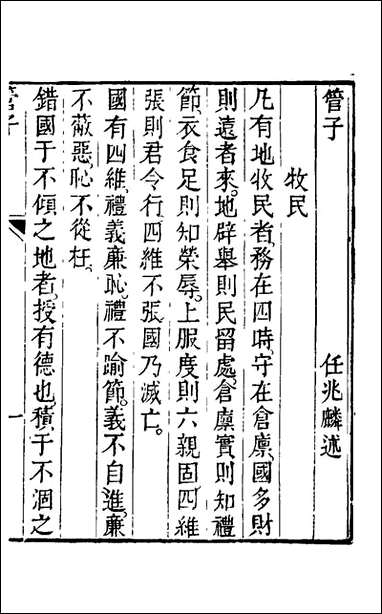 管子　任兆麟述
牧民
凡有地牧民者、務在四時、守在倉廩、國多財
則遠者來、地辟舉則民留處、倉廩實則知禮
節、衣食足則知榮辱、上服度則六親固、四維
張則君令行、四維不張、國乃滅亡。
國有四維、禮義廉恥、禮不踰節、義不自進、廉
不蔽惡、恥不從枉。
錯國于不傾之地者、授有德也、積于不涸之
管子
一